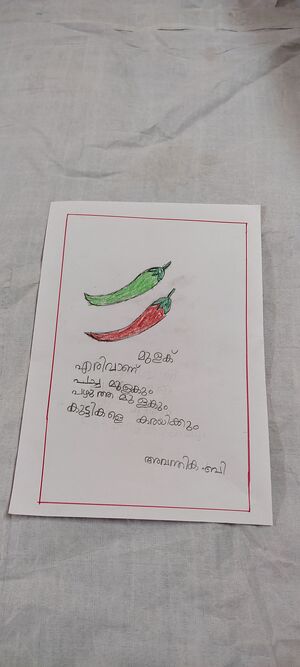 മുളക്
എരിവാണ്
പച്ച മുളകും
പഴുത്ത മുളകും
കുട്ടികളെ കരയിക്കും
അവന്തിക .ബി